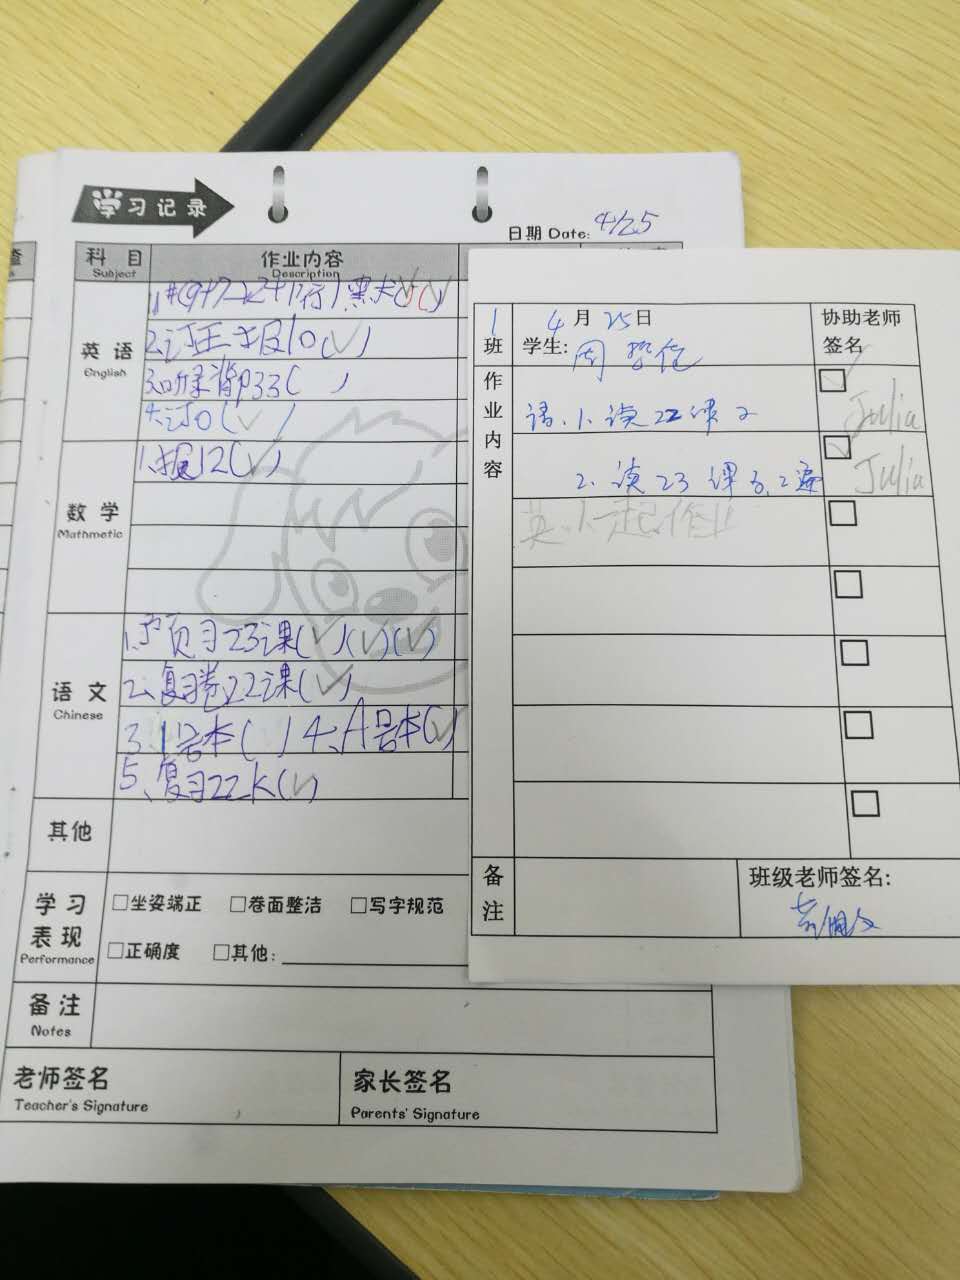 学习记录
日期 Date: 4/25
科目 Subject
作业内容 Description
英语 English
2.订正报10(✓)
3.听录背P33( )
4.订0(✓)
数学 Mathmetic
1.报12(✓)
语文 Chinese
1.预习23课(✓)(✓)(✓)
2.复习卷22课(✓)
3.1号本( ) 4.A号本(✓)
5.复习22K(✓)
其他
学习表现 Performance
□坐姿端正 □卷面整洁 □写字规范
□正确度 □其他:
备注 Notes
老师签名 Teacher's Signature
家长签名 Parents' Signature
1班
4月25日
学生: 周
协助老师签名
作业内容
语.1.读22课
Julia
2.读23课3.2遍
Julia
英.1.一起作业
备注
班级老师签名: